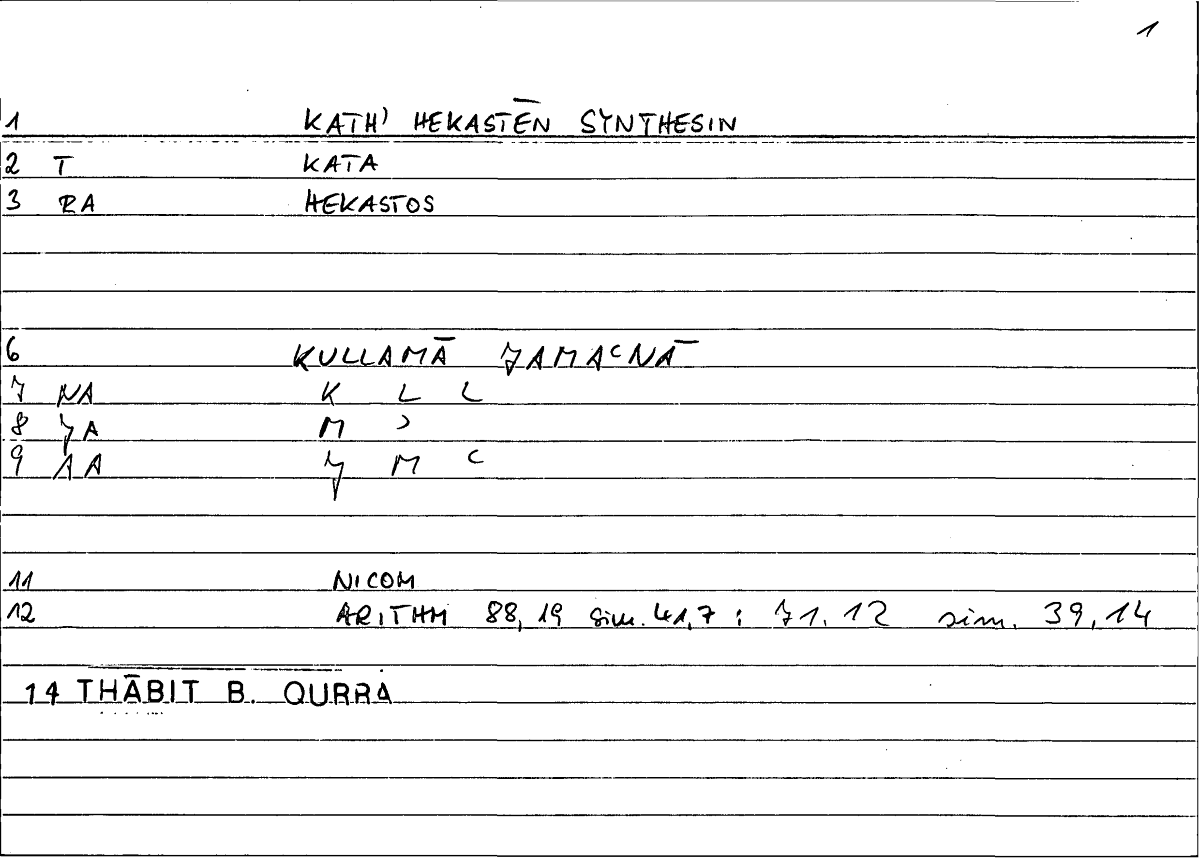 1
1 KATH' HEKASTĒN SYNTHESIN
2 T KATA
3 RA HEKASTOS
6 KULLAMĀ JAMAʿNĀ
7 NA K L L
8 JA M ʾ
9 AA J M ʿ
11 NICOM
12 ARITHM 88,19 sim. 41,7 : 71.12 sim. 39,14
14 THĀBIT B. QURRA